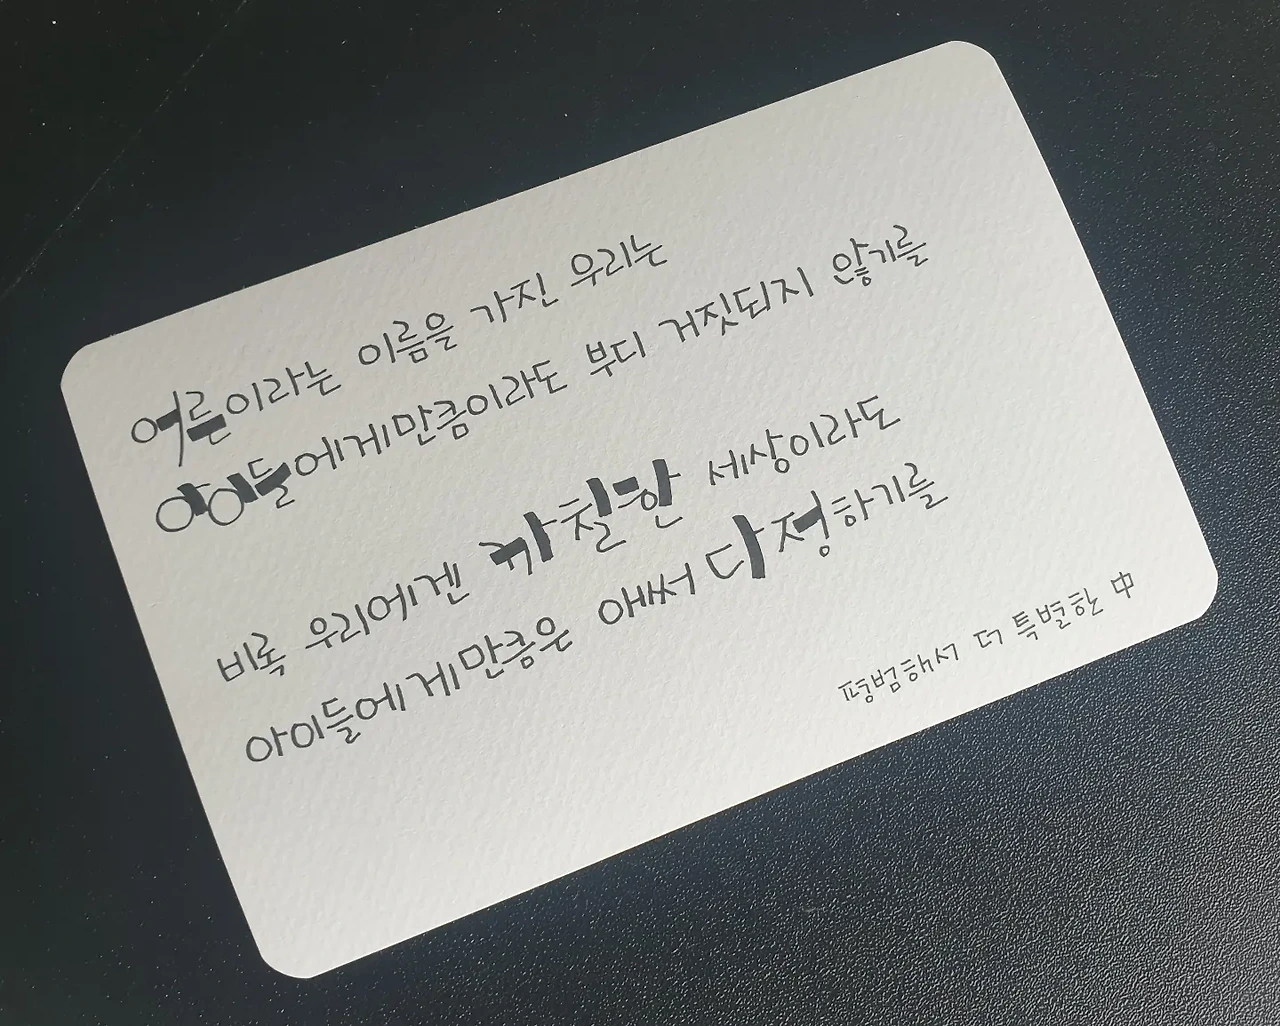 어른이라는 이름을 가진 우리는
아이들에게만큼이라도 부디 거짓되지 않기를
비록 우리에겐 까칠한 세상이라도
아이들에게만큼은 애써 다정하기를
평범해서 더 특별한 中